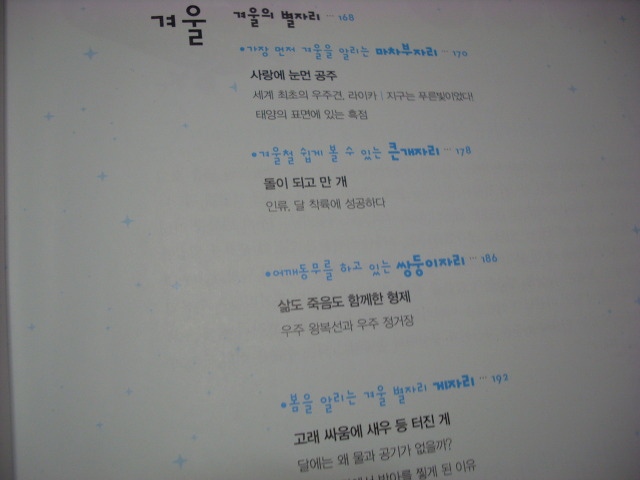 겨울
겨울의 별자리 ··· 168
•가장 먼저 겨울을 알리는 마차부자리 ··· 170
사랑에 눈먼 공주
세계 최초의 우주견, 라이카 | 지구는 푸른빛이었다!
태양의 표면에 있는 흑점
•겨울철 쉽게 볼 수 있는 큰개자리 ··· 178
돌이 되고 만 개
인류, 달 착륙에 성공하다
•어깨동무를 하고 있는 쌍둥이자리 ··· 186
삶도 죽음도 함께한 형제
우주 왕복선과 우주 정거장
•봄을 알리는 겨울 별자리 게자리 ··· 192
고래 싸움에 새우 등 터진 게
달에는 왜 물과 공기가 없을까?
방아를 찧게 된 이유